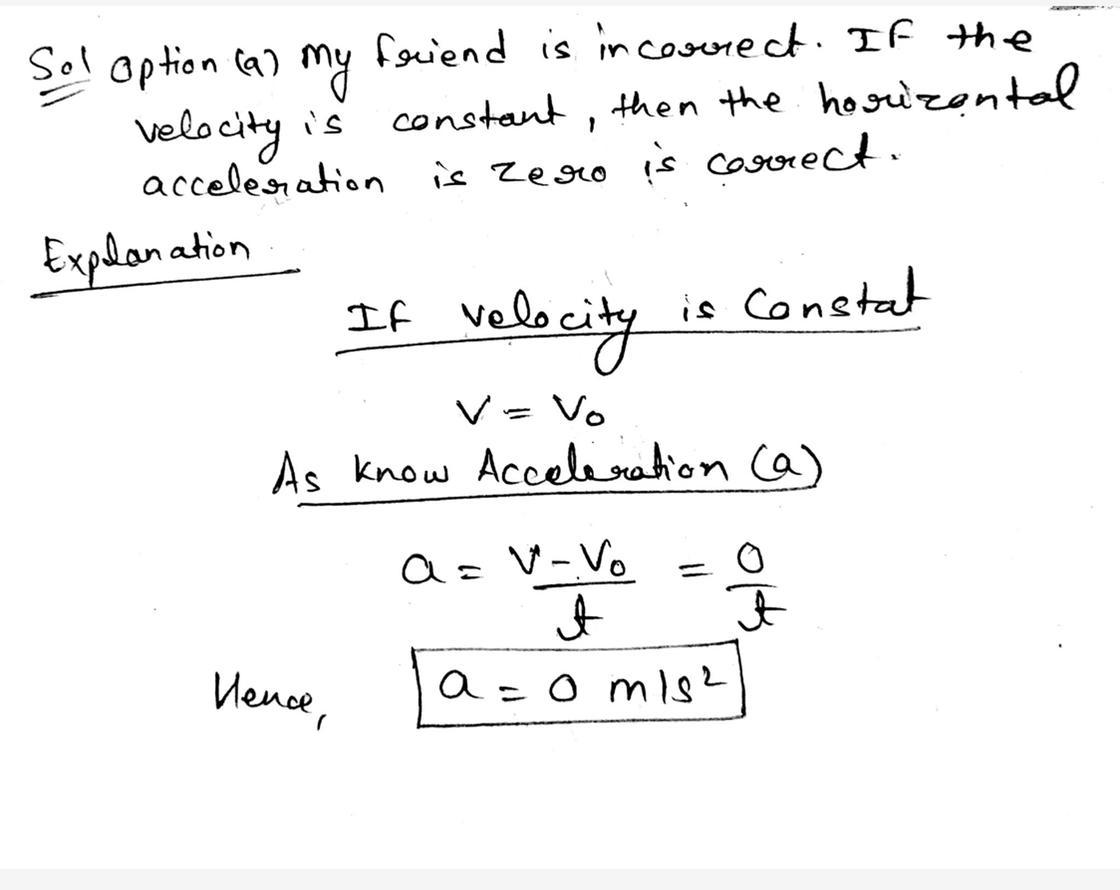 Sol Option (a) My friend is incorrect. If the
velocity is constant, then the horizontal
acceleration is zero is correct.
Explanation
If velocity is Constat
V = V₀
As know Acceleration (a)
a = V - V₀ / t = 0 / t
Hence, a = 0 m/s²